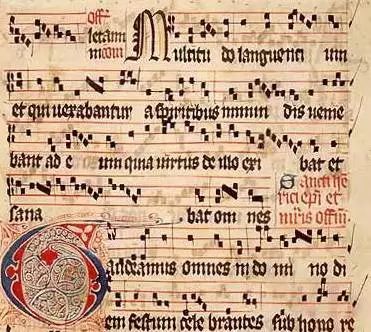 off̄
letam̄
incom̄ Multitu do languenti um
et qui uexabantur a spiritibus immun dis uenie
bant ad e um quia uirtus de illo exi bat et
sana bat om nes Sancti
rici ep̄i et
m̄ris offm̄.
Gaudeamus omnes in do mi no di
em festum cele brantes sub hono re